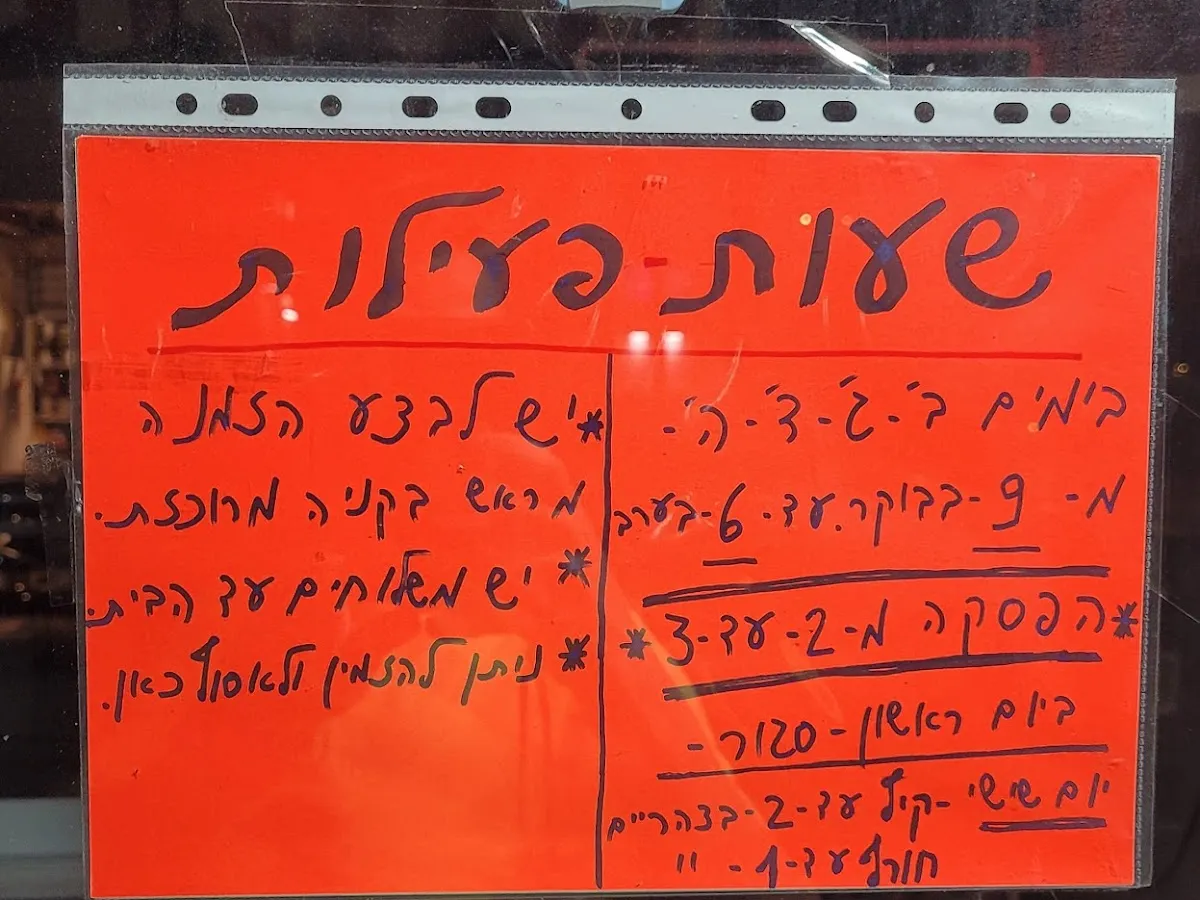 שעות - פעילות
בימים ב'-ג'-ד'-ה'-
מ- 9-בבוקר.עד-6-בערב
*הפסקה מ-2-עד-3*
ביום ראשון-סגור-
יום שישי -קיץ עד-2-בצהריים
חורף עד-1-״
*יש לבצע הזמנה
מראש בקניה מרוכזת.
* יש משלוחים עד הבית.
* ניתן להזמין ולאסוף כאן.